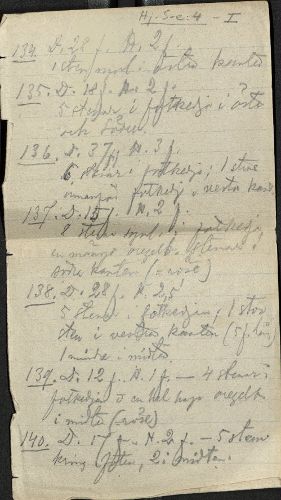 Hj. S-c: 4 - I
134. D. 28 f. H. 2 f.
1 sten i östra kanten
135. D. 18 f. H. 2 f.
5 stenar i fotkedja i östr
och södr.
136. D. 37 f. H. 3 f.
6 stenar i fotkedja; 1 stor
fotkedj. v. östra kant
137. D. 15 f. H. 2 f.
8 stenar i fotkedja
en mängd oregelb. stenar i
södra kanten (= röse)
138. D. 28 f. H. 2,5
5 stenar i fotkedjan; 1 stor
sten i vestra kanten (5 f. lång)
1 mindre i midten
139. D. 12 f. H. 1 f. — 4 stenar i
fotkedja o en hel hop oregelb
i midten (= röse)
140. D. 17 f. H. 2 f. — 5 stenar
kring foten, 2 i midten.